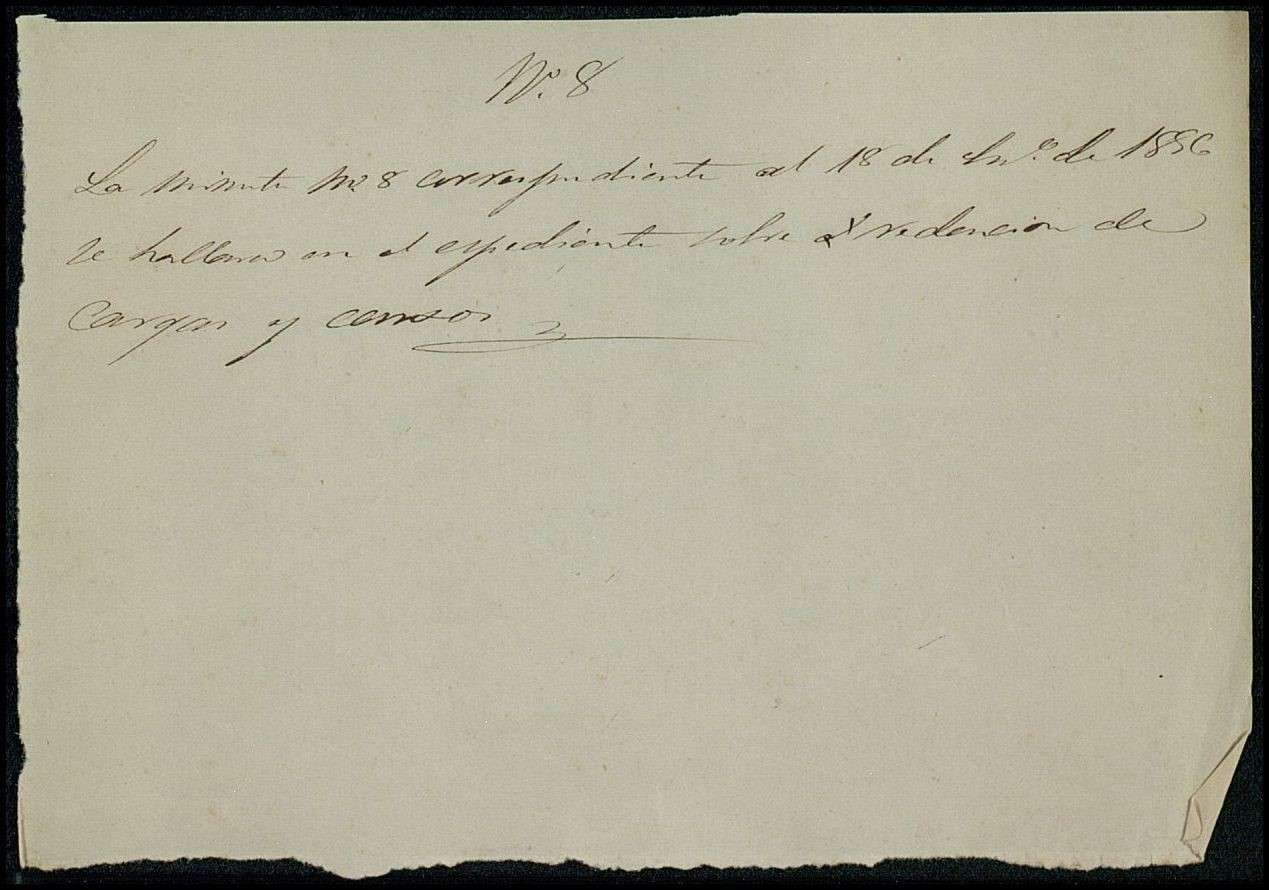 Nº. 8
La minuta nº 8 correspondiente al 18 de En.º de 1886
se hallara en el espediente sobre redencion de
Cargas y censos